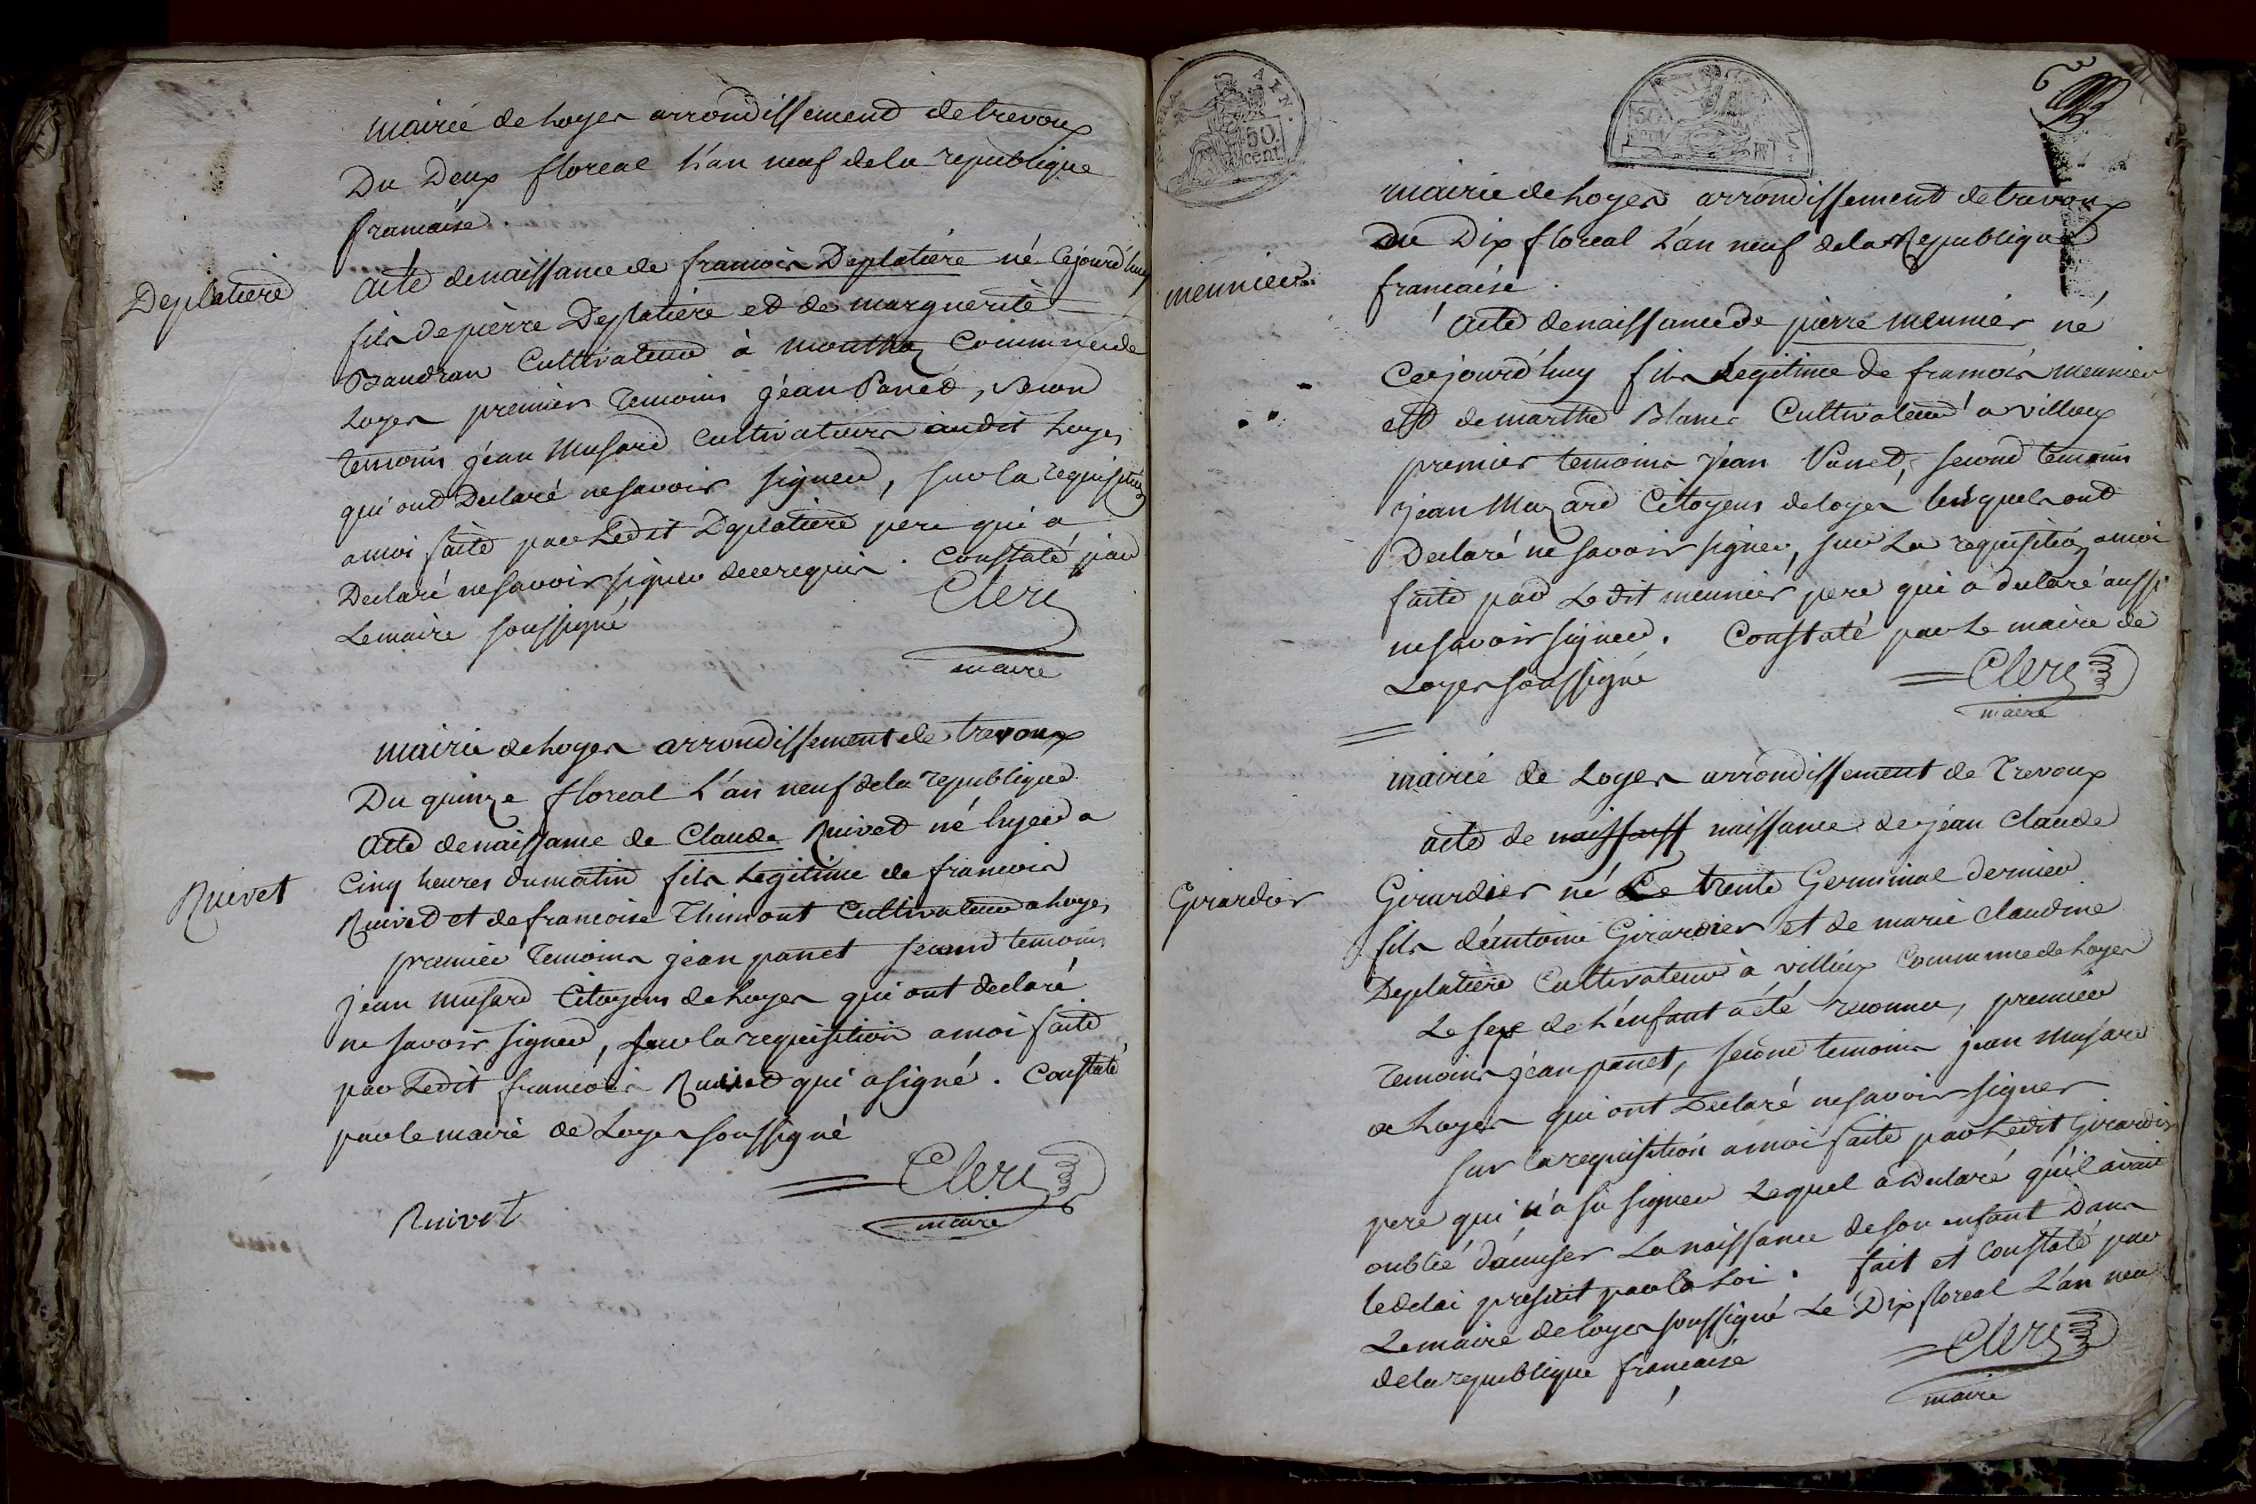 mairie de Loyes arrondissement de trevoux
Du Deux floreal L'an neuf de la republique
francaise
Deplatiere
Acte de naissance de francois Deplatiére né Cejourd'huy
fils de pierre Deplatiere et de marguerite
Baudran Cultivateur à monthoz Commune de
Loyes premier temoins jéan Panet, Second
temoins jéan Musard Cultivateurs audit Loyes
qui ont Declaré ne savoir signer, sur la requisition
a moi faite par Ledit Deplatiere pere qui a
Declaré ne savoir signer de ce requis. Constaté par
Le maire soussigné
Clerc
maire
mairie de Loyes arrondissement de trevoux
Du quinze floreal L'an neuf de la republique
Acte de naissance de Claude Ruivet né hyer a
Ruivet
Cinq heures du matin fils Legitime de francois
Ruivet et de francoise Thimont Cultivateur a Loyes
premier temoins jean panet second temoins
jean musard Citoyens de Loyes qui ont declaré
ne savoir signer, sur la requisition a moi faite
par Ledit francois Ruivet qui a signé. Constaté
par le maire de Loyes soussigné
Clerc
maire
Ruivet
50
cent
50
cent
mairie de Loyes arrondissement de trevoux
Du Dix floreal L'an neuf de la Republique
meunier
francaise
Acte de naissance de pierre meunier né
Cejourd'huy fils Legitime de francois meunier
et de marthe Blanc Cultivateur a villieux
premier temoins jean Panet, second temoins
jean Mazard Citoyens de loyes lesquels ont
Declaré ne savoir signer, sur La requisition a moi
faite par Ledit meunier pere qui a declaré aussi
ne savoir signer. Constaté par Le maire de
Loyes soussigné
Clerc
maire
mairie de Loyes arrondissement de Trevoux
acte de naissance de jéan Claude
Girardier
Girardier né Le trente Germinal dernier
fils d'antoine Girardier et de marie Claudine
Deplatiere Cultivateur à villieux Commune de Loyes
Le sexe de L'enfant a été reconnu, premier
temoins jéan panet, second temoins jean musard
de Loyes qui ont Declaré ne savoir signer
sur la requisition a moi faite par Ledit Girardier
pere qui n'a su signer Lequel a Declaré qu'il avait
oublié d'acuser La naissance de son enfant Dans
le delai prescrit par la Loi. fait et Constaté par
Le maire de loyes soussigné Le Dix floreal L'an neuf
de la republique francaise
Clerc
maire